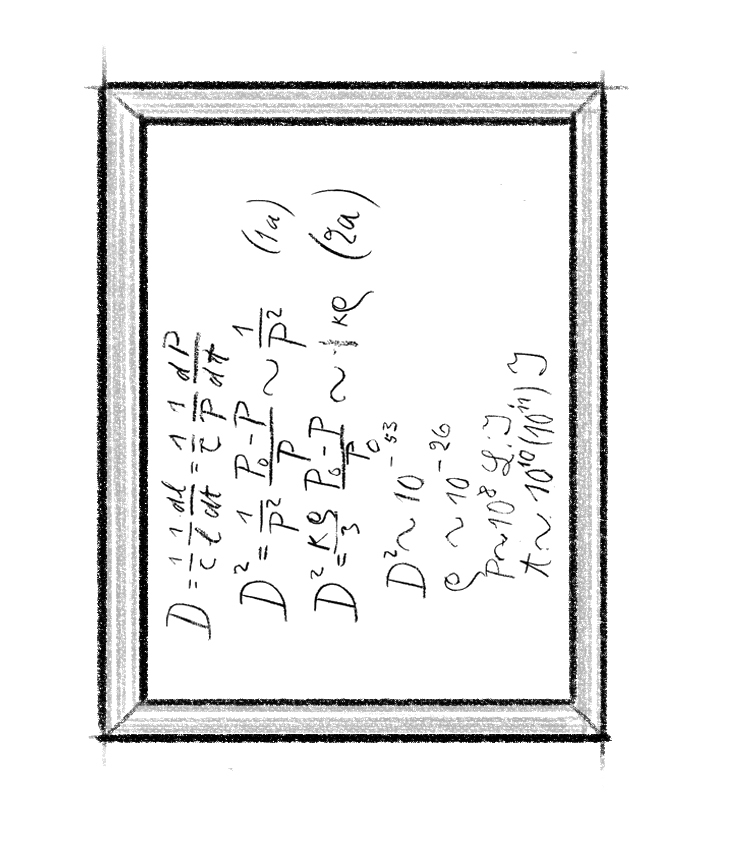 D = 1/c 1/l dl/dt = 1/c 1/P dP/dt
D² = 1/P² P₀-P/P ~ 1/P² (1a)
D² = κρ/3 P₀-P/P₀ ~ 1/3 κρ (2a)
D² ~ 10⁻⁵³
ρ ~ 10⁻²⁶
P ~ 10⁸ L.J
t ~ 10¹⁰(10¹¹) J